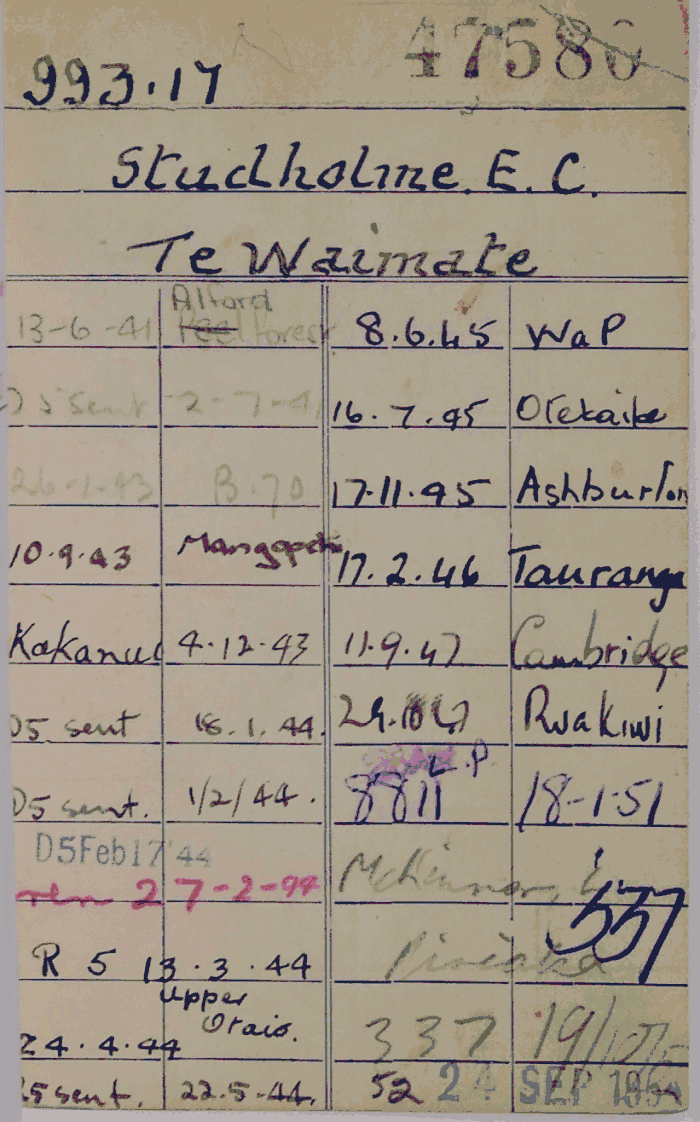 47580
993.17
Studholme. E. C.
Te Waimate
13-6-41 Alford forest
D5 sent 2-7-41
26-1-43 B.70
10.9.43
Kakanui 4.12.43
D5 sent 18.1.44.
D5 sent. 1/2/44.
D5 Feb 17 '44
27-2-44
R 5 13.3.44
24.4.44 Upper Otaio.
sent. 22.5.44.
8.6.45 WaP
16.7.45 Otekaike
17.11.45 Ashburton
17.2.46 Tauranga
11.9.47 Cambridge
Ruakiwi
L.P.
8811 18-1-51
McKinnon,
337
337
52 24 SEP